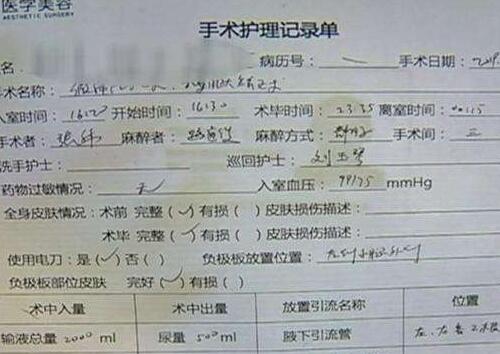 医学美容
AESTHETIC SURGERY
手术护理记录单
名: 病历号: 手术日期:
手术名称:
入室时间: 16:20 开始时间: 16:30 术毕时间: 23:35 离室时间: 00:15
手术者: 张 麻醉者: 麻醉方式: 手术间: 三
洗手护士: 巡回护士: 刘玉琴
药物过敏情况: 无 入室血压: 99/75 mmHg
全身皮肤情况: 术前 完整(✓)有损( ) 皮肤损伤描述:
术毕 完整(✓)有损( ) 皮肤损伤描述:
使用电刀: 是(✓)否( ) 负极板放置位置:
负极板部位皮肤 完好(✓)有损( )
术中入量 术中出量 放置引流名称 位置
输液总量 2000 ml 尿量 500 ml 腋下引流管 左、右